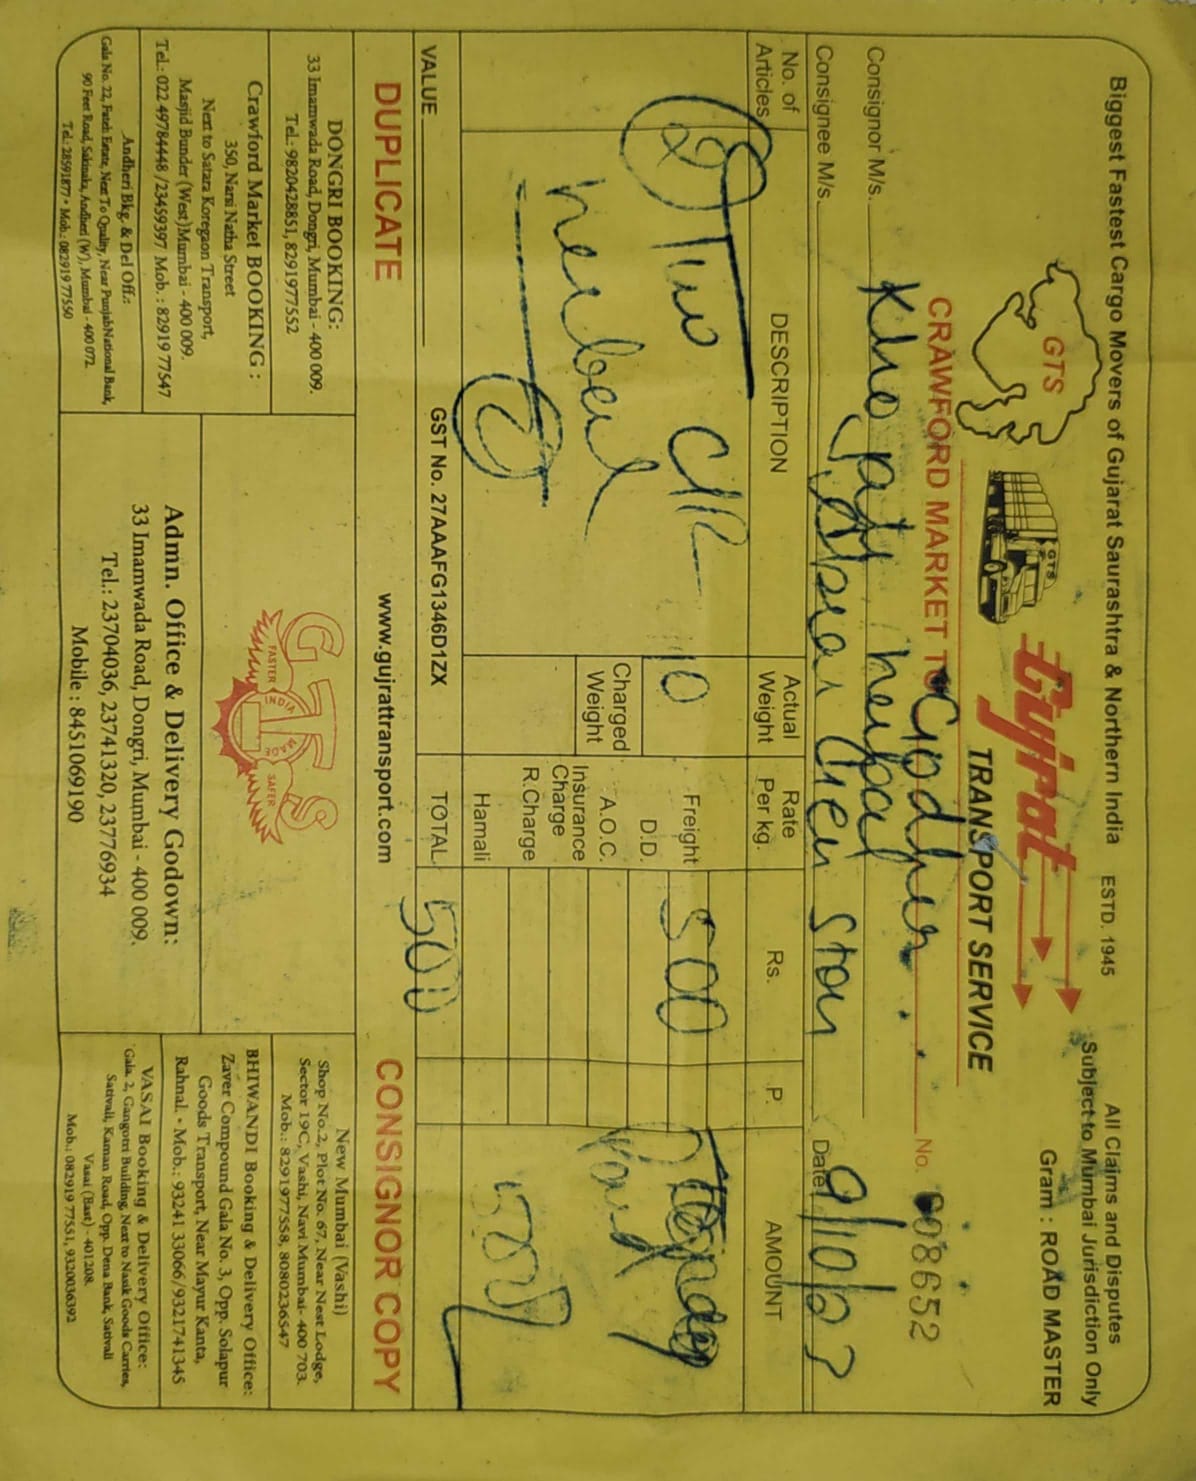 Biggest Fastest Cargo Movers of Gujarat Saurashtra & Northern India ESTD. 1945
All Claims and Disputes
Subject to Mumbai Jurisdiction Only
Gram : ROAD MASTER
GTS
GTS
Gujrat
TRANSPORT SERVICE
CRAWFORD MARKET TO
No. 008652
Consignor M/s. herbal
Consignee M/s. Gen Stor
Date 9/10/2
No. of Articles
DESCRIPTION
Actual Weight
Rate Per kg.
Rs.
P.
AMOUNT
2 Two
herbal
10
Charged Weight
Freight 500
D.D.
A.O.C.
Insurance Charge
R.Charge
Hamali
Paid
500
VALUE
GST No. 27AAAFG1346D1ZX
TOTAL 500
DUPLICATE
www.gujrattransport.com
CONSIGNOR COPY
DONGRI BOOKING:
33 Imamwada Road, Dongri, Mumbai - 400 009.
Tel.: 9820428851, 8291977552
Crawford Market BOOKING :
350, Narsi Natha Street
Next to Satara Koregaon Transport,
Masjid Bunder (West)Mumbai - 400 009.
Tel.: 022 49784448 /23459397 Mob. : 82919 77547
Andheri Bkg. & Del Off.:
Gala No. 22, Fateh Estate, Next To Quality, Near PunjabNational Bank,
90 Feet Road, Sakinaka, Andheri (W), Mumbai - 400 072.
Tel.: 28591877 • Mob.: 082919 77550
GTS
FASTER
INDIA
SAFER
Admn. Office & Delivery Godown:
33 Imamwada Road, Dongri, Mumbai - 400 009.
Tel.: 23704036, 23741320, 23776934
Mobile : 8451069190
New Mumbai (Vashi)
Shop No.2, Plot No. 67, Near Nest Lodge,
Sector 19C, Vashi, Navi Mumbai- 400 703.
Mob.: 8291977558, 8080236547
BHIWANDI Booking & Delivery Office:
Zaver Compound Gala No. 3, Opp. Solapur
Goods Transport, Near Mayur Kanta,
Rahnal. • Mob.: 93241 33066/9321741345
VASAI Booking & Delivery Office:
Gala. 2, Gangotri Building, Next to Nasik Goods Carries,
Sativali, Kaman Road, Opp. Dena Bank, Sativali
Vasai (East) - 401208.
Mob.: 082919 77551, 9320036392